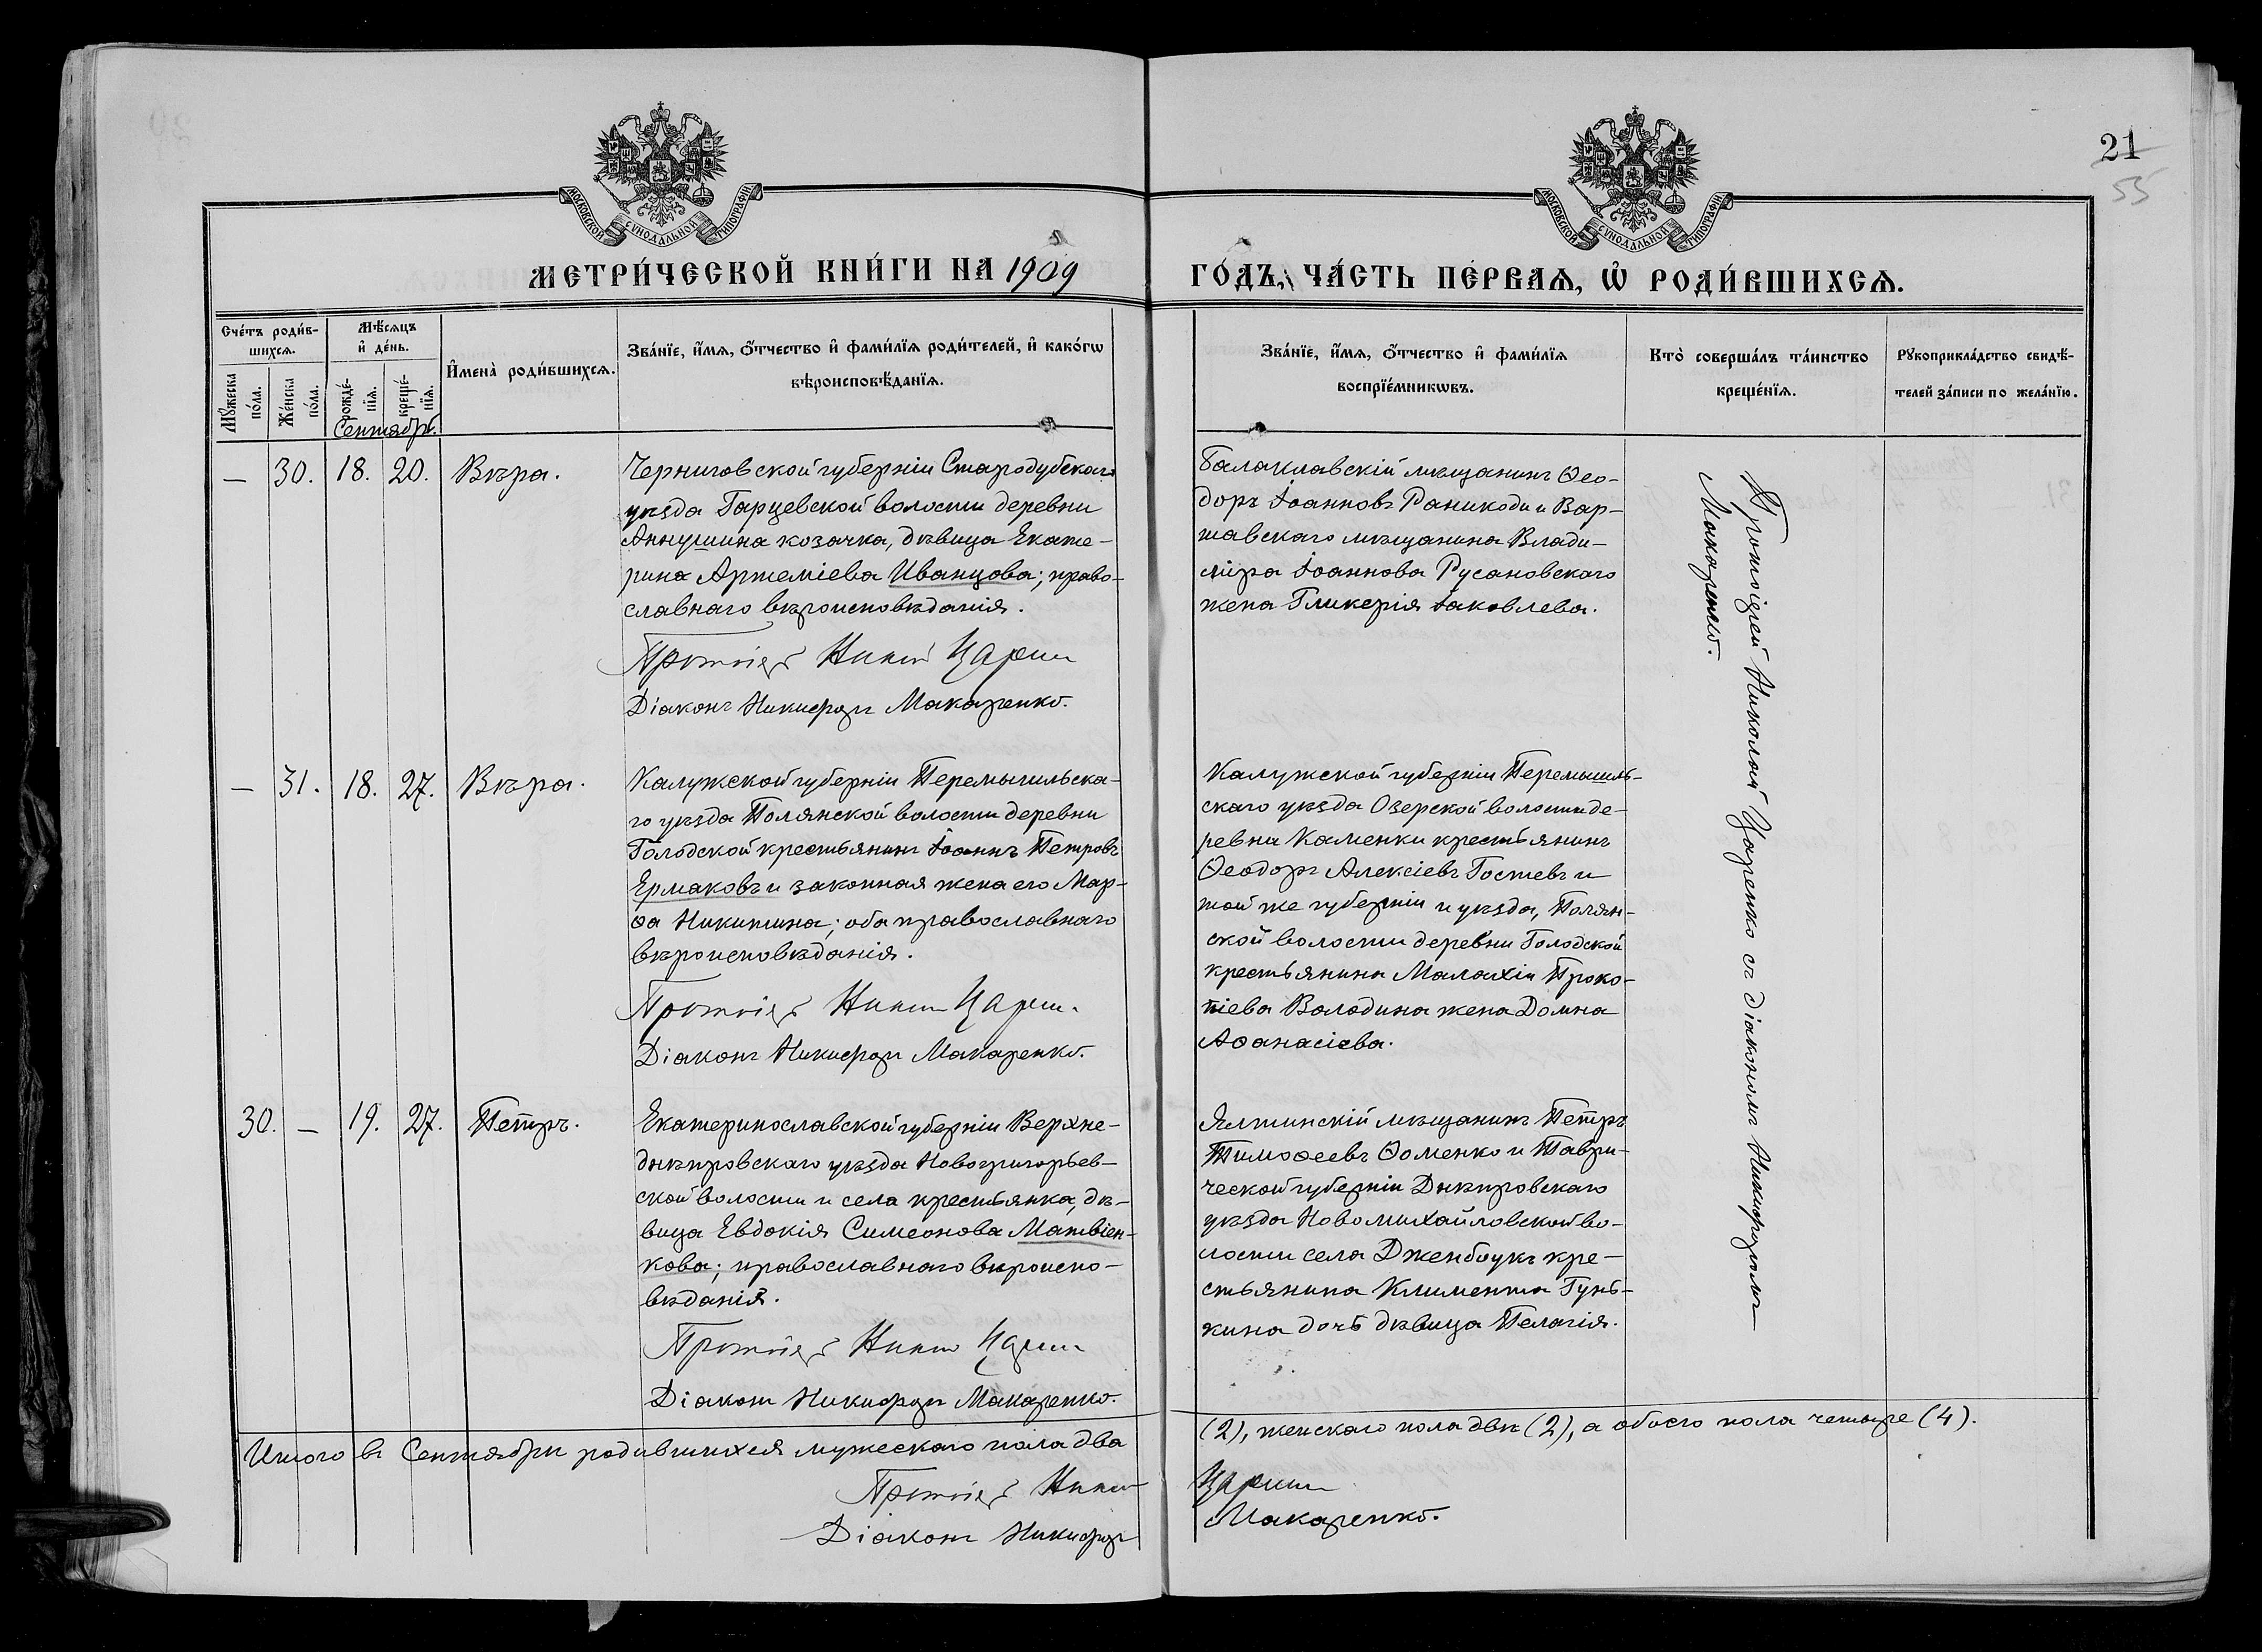 21
55
МОСКОВСКОЙ СѴНОДАЛЬНОЙ ТИПОГРАФІИ
МОСКОВСКОЙ СѴНОДАЛЬНОЙ ТИПОГРАФІИ
МЕТРИ́ЧЕСКОЙ КНИ́ГИ НА 1909
ГО́ДЪ, ЧА́СТЬ ПЕ́РВАѦ, Ѡ҆ РОДИ́ВШИХСѦ.
Сче́тъ роди́в-
шихсѧ.
Мѣ́сѧцъ
и҆ де́нь.
Мꙋ́жеска
по́ла.
Же́нска
по́ла.
рожде́-
нїѧ.
креще́-
нїѧ.
Сентябрь.
И҆мена̀ роди́вшихсѧ.
Зва́нїе, и҆́мѧ, ѻ҆́тчество и҆ фами́лїѧ роди́телей, и҆ како́гѡ
вѣроисповѣ́данїѧ.
Зва́нїе, и҆́мѧ, ѻ҆́тчество и҆ фами́лїѧ
воспрїе́мникѡвъ.
Кто̀ соверша́лъ та́инство
креще́нїѧ.
Рꙋкоприкла́дство свидѣ́-
телей за́писи по жела́нїю.
— 30. 18. 20. Вѣра.
Черниговской губерніи Стародубскаго
уѣзда Гарцевской волости деревни
Аннушина козачка, дѣвица Екате-
рина Артеміева Иванцова; право-
славнаго вѣроисповѣданія.
Протоіер
Діаконъ Никифоръ Макаренко.
Балаклавскій мѣщанинъ Ѳео-
доръ Іоанновъ Раникоди и Вар-
шавскаго мѣщанина Влади-
міра Іоаннова Русановскаго
жена Гликерія Іаковлева.
Протоіерей Николай Царенко съ діакономъ Никифоромъ
Макаренко.
— 31. 18. 27. Вѣра.
Калужской губерніи Перемышльска-
го уѣзда Полянской волости деревни
Голодской крестьянинъ Іоаннъ Петровъ
Ермаковъ и законная жена его Мар-
ѳа Никитина; оба православнаго
вѣроисповѣданія.
Протоіер
Діаконъ Никифоръ Макаренко.
Калужской губерніи Перемышль-
скаго уѣзда Озерской волости де-
ревни Каменки крестьянинъ
Ѳеодоръ Алексіевъ Гостевъ и
той же губерніи и уѣзда, Полян-
ской волости деревни Голодской
крестьянина Малахіи Проко-
піева Володина жена Домна
Аѳанасіева.
30. — 19. 27. Петръ.
Екатеринославской губерніи Верхне-
днѣпровскаго уѣзда Новогригорьев-
ской волости и села крестьянка, дѣ-
вица Евдокія Симеонова Матвіен-
кова; православнаго вѣроиспо-
вѣданія.
Протоіер
Діаконъ Никифоръ Макаренко.
Ялтинскій мѣщанинъ Петръ
Тимоѳеевъ Ѳоменко и Таври-
ческой губерніи Днѣпровскаго
уѣзда Новомихайловской во-
лости села Дженбоукъ кре-
стьянина Климента Гунь-
кина дочь дѣвица Пелагія.
Итого въ Сентябрѣ родившихся мужескаго пола два
(2), женскаго пола двѣ (2), а обоего пола четыре (4).
Протоіер
Діаконъ Никифоръ
Макаренко.